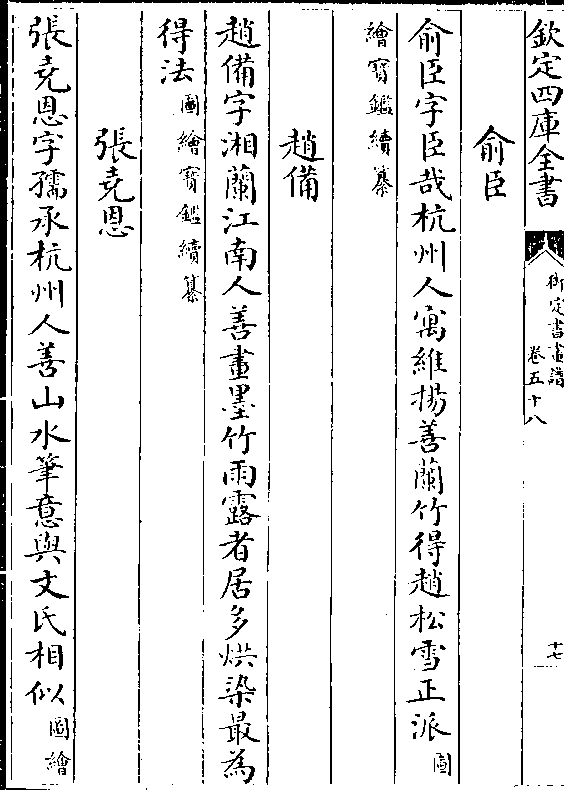 欽定四庫全書
御定書畫譜
卷五十八
十七
俞臣
俞臣字臣哉杭州人寓維揚善蘭竹得趙松雪正派圖
繪寶鑑續纂
趙備
趙備字湘蘭江南人善畫墨竹雨露者居多烘染最為
得法圖繪寶鑑續纂
張尭恩
張尭恩字孺承杭州人善山水筆意與文氏相似圖繪